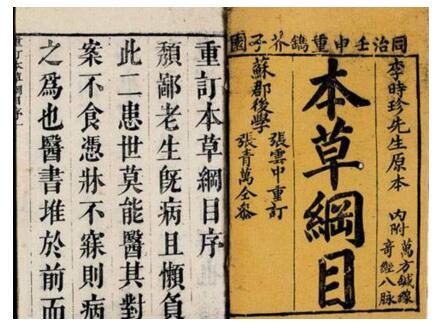 同治壬申重鐫芥子園
李時珍先生原本
內附萬方鍼線
奇經八脉
本草綱目
蘇郡後學
張雲中重訂
張青萬仝參
重訂本草綱目序
頹鄙老生旣病且懶負
此二患世莫能醫其對
案不食憑牀不寐則病
之爲也醫書堆於前而
重訂本草綱目序一